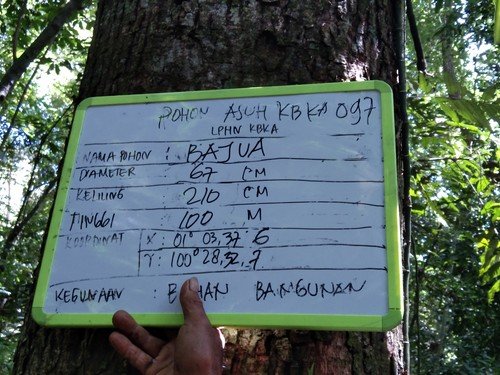 POHON ASUH KBKA 097
LPHN KBKA
NAMA POHON : BAJUA
DIAMETER : 67 CM
KELILING : 210 CM
TINGGI : 100 M
KOORDINAT X : 01° 03,37,6
Y : 100° 28,32,7
KEGUNAAN : BAHAN BANGUNAN